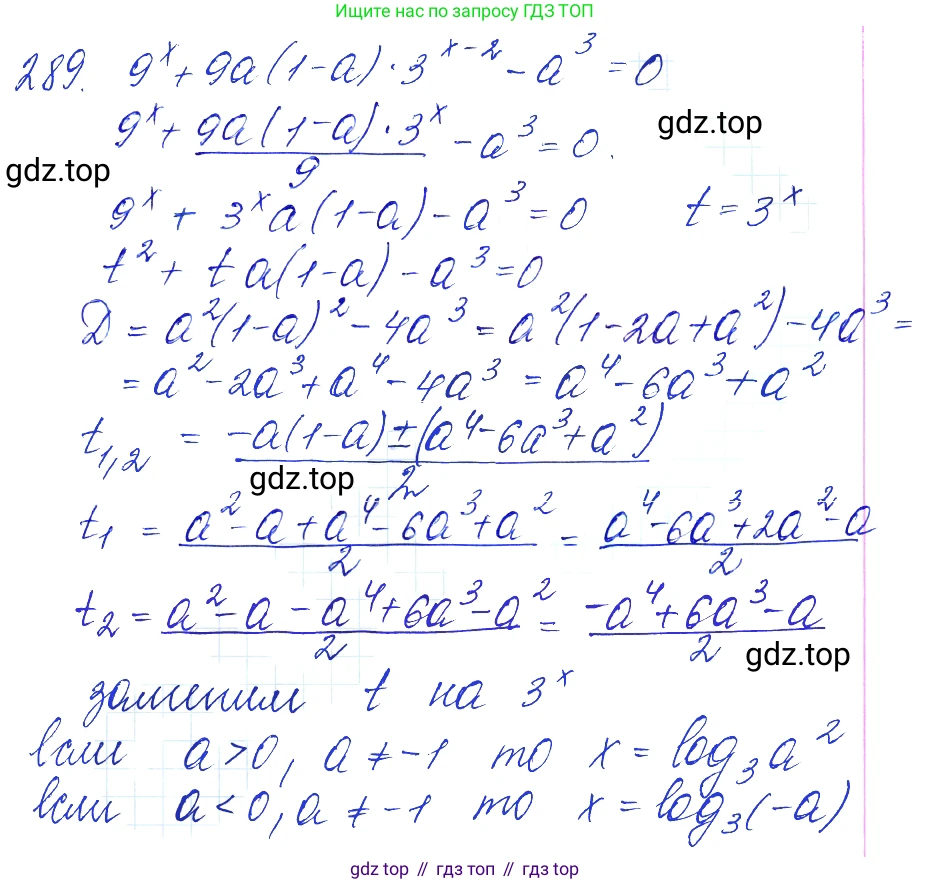 Ищите нас по запросу ГДЗ ТОП
289. 9^x + 9a(1-a)·3^{x-2} - a^3 = 0
9^x + \frac{9a(1-a)·3^x}{9} - a^3 = 0.
gdz.top
gdz.top
9^x + 3^x a(1-a) - a^3 = 0 t = 3^x
t^2 + t a(1-a) - a^3 = 0
D = a^2(1-a)^2 - 4a^3 = a^2(1-2a+a^2) - 4a^3 =
= a^2 - 2a^3 + a^4 - 4a^3 = a^4 - 6a^3 + a^2
t_{1,2} = \frac{-a(1-a) ± (a^4 - 6a^3 + a^2)}{2}
gdz.top
t_1 = \frac{a^2 - a + a^4 - 6a^3 + a^2}{2} = \frac{a^4 - 6a^3 + 2a^2 - a}{2}
t_2 = \frac{a^2 - a - a^4 + 6a^3 - a^2}{2} = \frac{-a^4 + 6a^3 - a}{2}
gdz.top
заменим t на 3^x
если a > 0, a ≠ -1 то x = log_3 a^2
если a < 0, a ≠ -1 то x = log_3(-a)
gdz top // гдз топ // гдз top